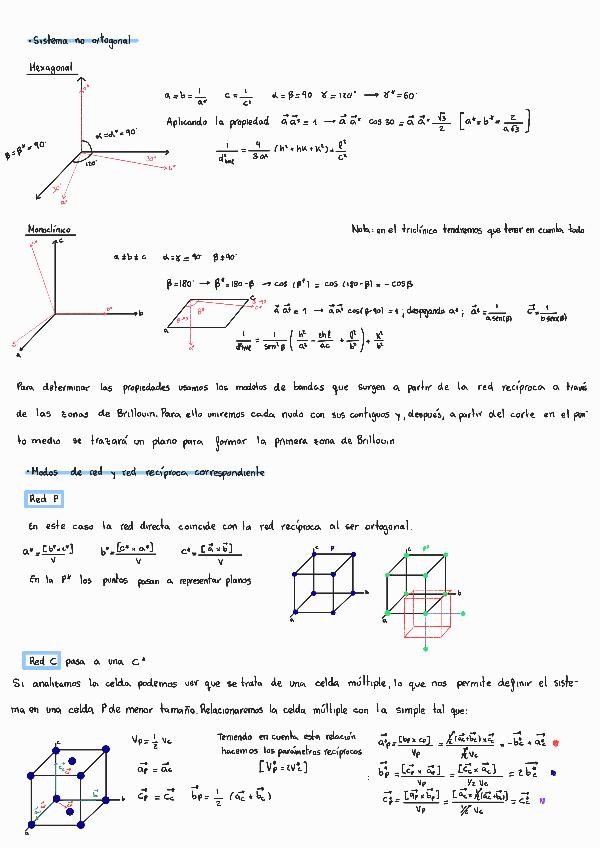 · Sistema no ortogonal
Hexagonal
a = b = 1/a* c = 1/c* α = β = 90 γ = 120° → γ* = 60°
Aplicando la propiedad a⃗ a⃗* = 1 → a⃗ a⃗* cos 30 = a⃗ a⃗* √3/2 [a* = b* = 2/(a√3)]
α = α* = 90°
β = β* = 90°
120°
30°
b*
30°
a*
Monoclínico
Nota: en el triclínico tendremos que tener en cuenta todo
a ≠ b ≠ c α = γ = 90 β ≠ 90°
c
b
a
β = 180° → β* = 180 - β → cos (β*) = cos (180 - β) = - cos β
a⃗ a⃗* = 1 → a⃗ a⃗* cos(β-90) = 1; despejando a*; a⃗* = 1/(a sen(β))
Para determinar las propiedades usamos los modelos de bandas que surgen a partir de la red recíproca a través
de las zonas de Brillouin. Para ello uniremos cada nudo con sus contiguos y, después, a partir del corte en el pun-
to medio se trazará un plano para formar la primera zona de Brillouin
· Modos de red y red recíproca correspondiente
Red P
En este caso la red directa coincide con la red recíproca al ser ortogonal.
En la P* los puntos pasan a representar planos
c P
b
a
P*
b
a
Red C pasa a una C*
Si analizamos la celda podemos ver que se trata de una celda múltiple, lo que nos permite definir el siste-
ma en una celda P de menor tamaño. Relacionaremos la celda múltiple con la simple tal que:
Vp = 1/2 Vc
Teniendo en cuenta esta relación
hacemos los parámetros recíprocos
[Vp* = 2Vc*]
a⃗p = a⃗c
c⃗p = c⃗c b⃗p = 1/2 (a⃗c + b⃗c)
c
b
a